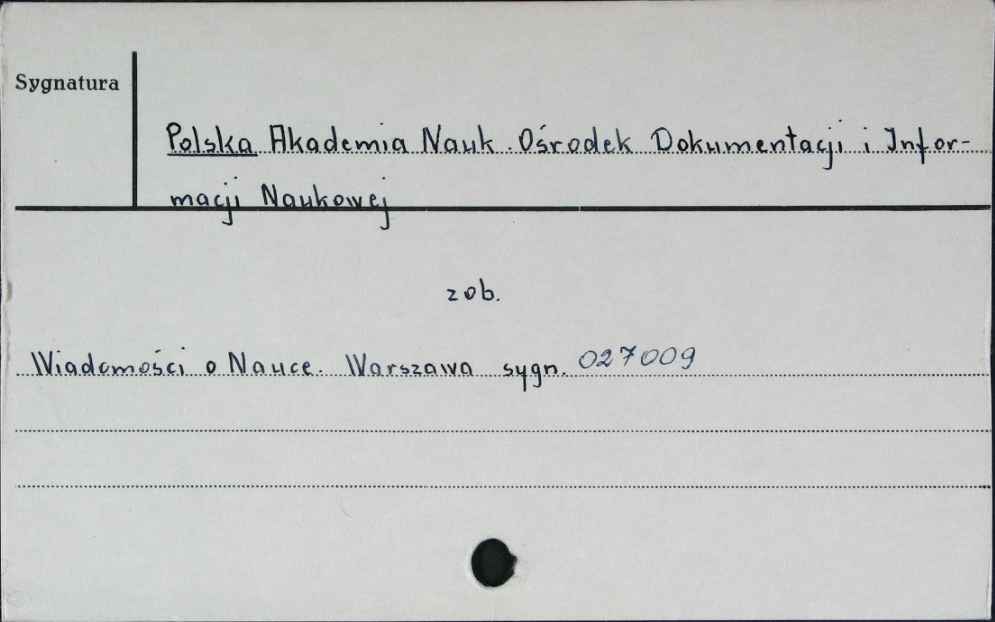 Sygnatura
Polska Akademia Nauk. Ośrodek Dokumentacji i Infor-
macji Naukowej
zob.
Wiadomości o Nauce. Warszawa sygn. 027009